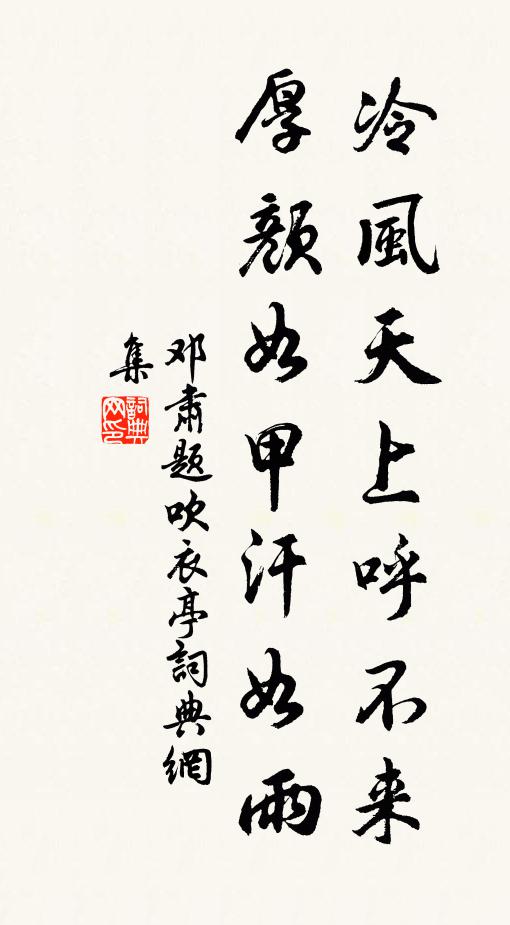 冷風天上呼不来
厚顔如甲汗如雨
邓肅题吹衣亭詞典網
集
詞典
网印